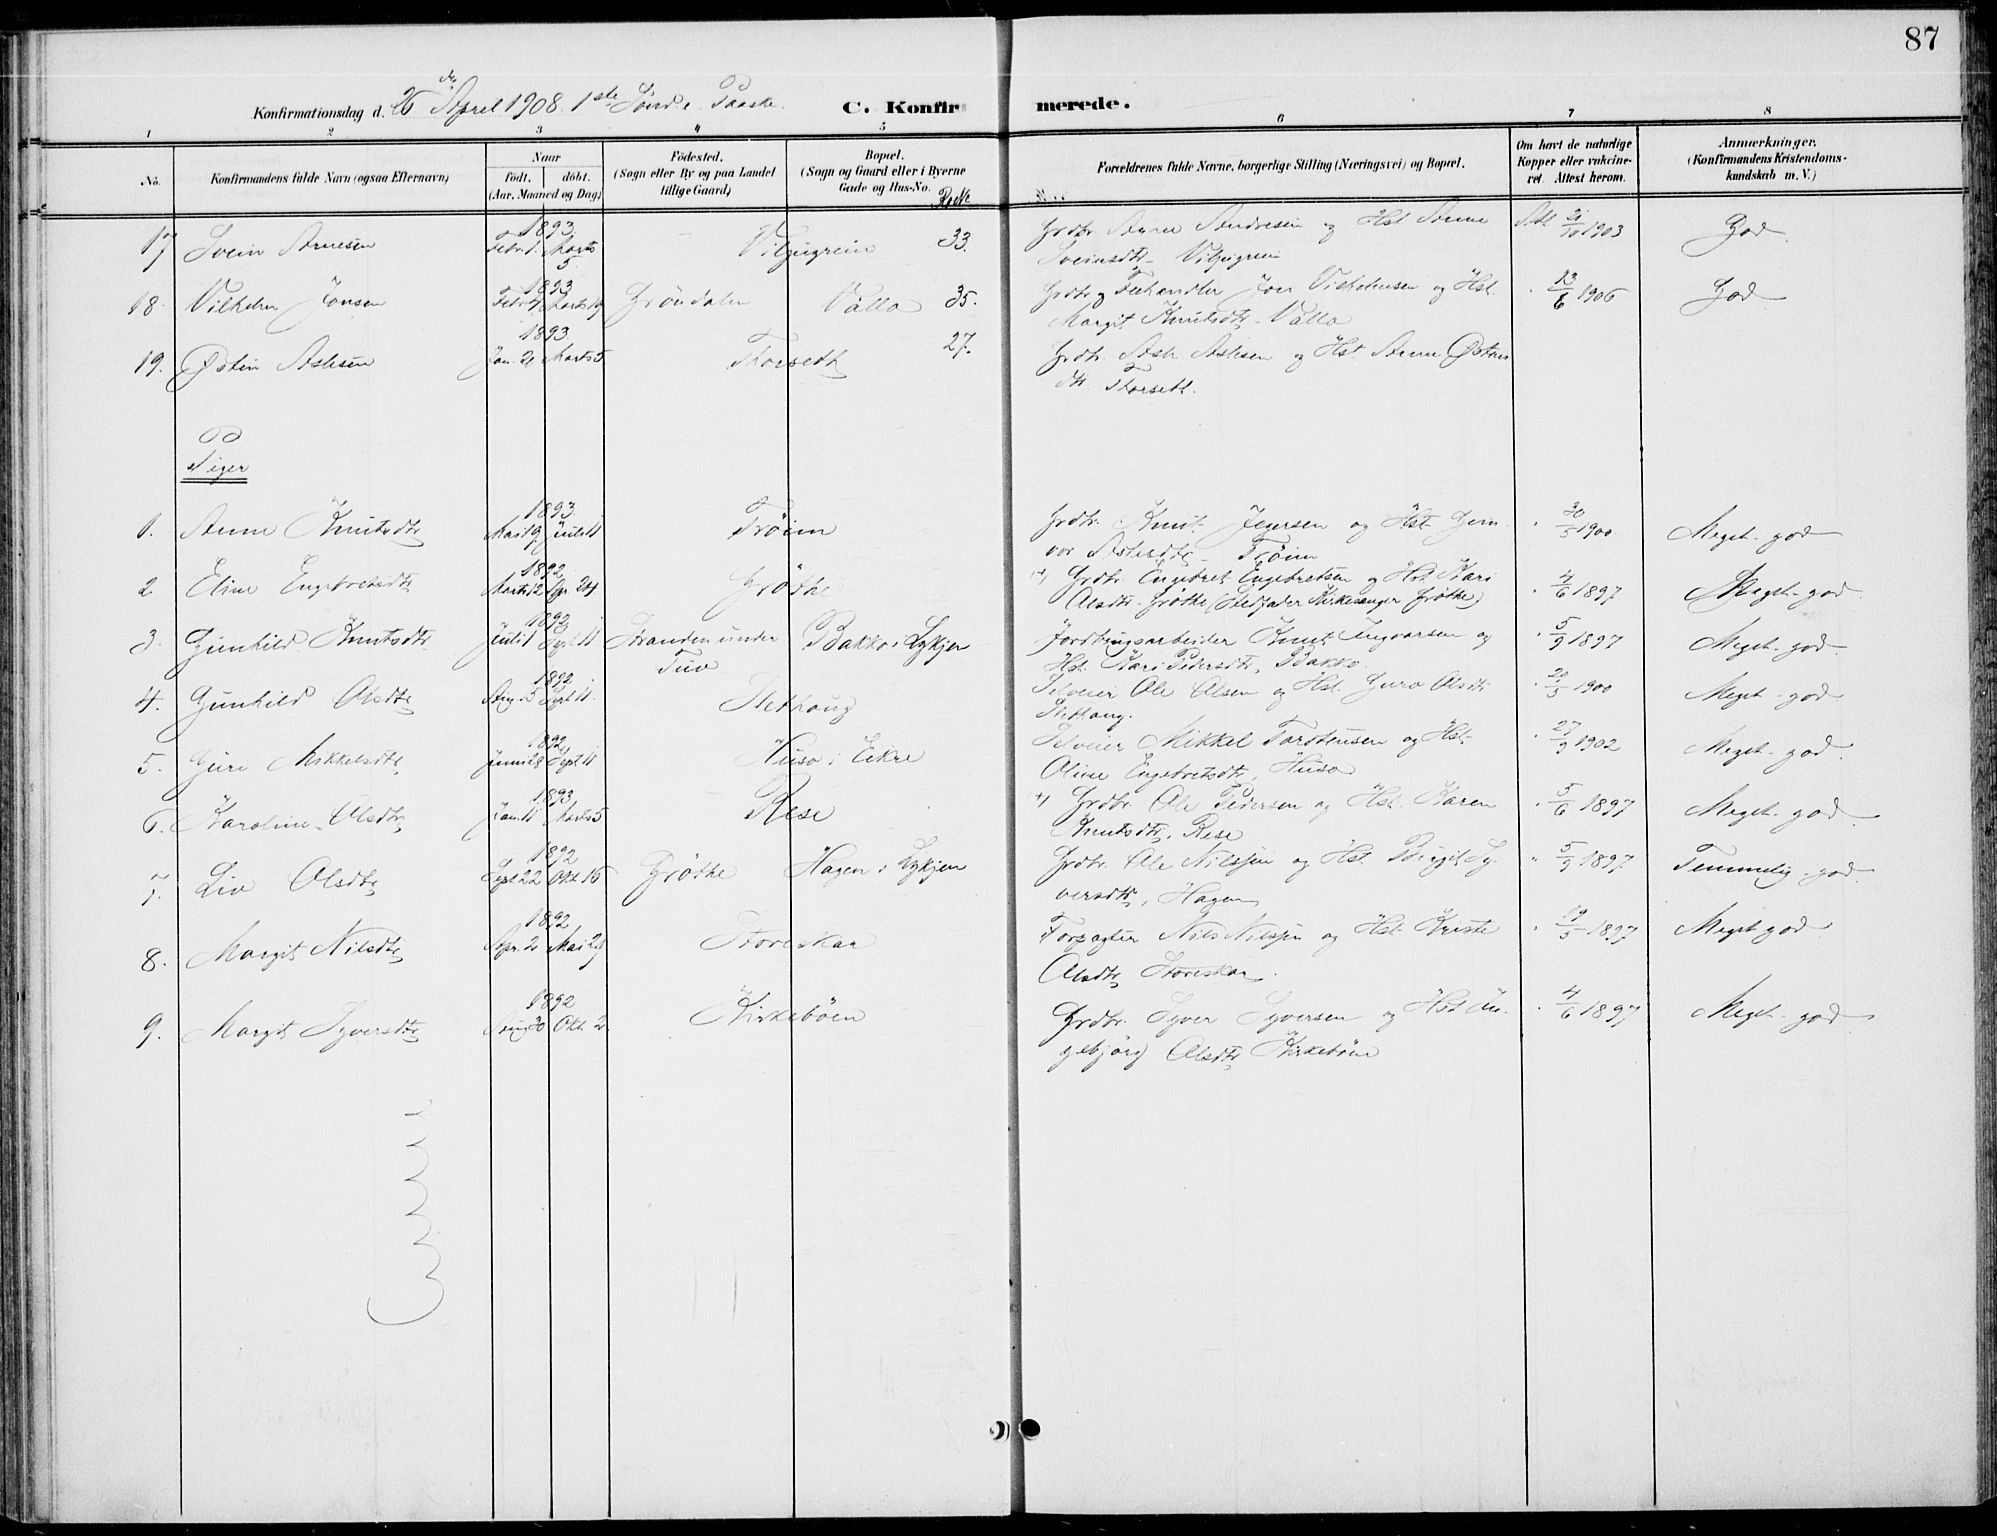 87
Konfirmationsdag d. 26 de April 1908. 1ste Sönd. e. Paaske.
C. Konfirmerede.
1 2 3 4 5 6 7 8
No. Konfirmandens fulde Navn (ogsaa Efternavn) Naar födt. döbt. (Aar, Maaned og Dag) Födested. (Sogn eller By og paa Landet tillige Gaard) Bopæl. (Sogn og Gaard eller i Byerne Gade og Hus-No. Forældrenes fulde Navne, borgerlige Stilling (Næringsvei) og Bopæl. Om havt de naturlige Kopper eller vakcineret. Attest herom. Anmærkninger. (Konfirmandens Kristendomskundskab m. V.)
17 Svein Arnesen 1893 Febr. 1. Marts 5. 33. Grdbr. Arne Andresen og Hst. Anne Sveinsdtr. Att. 21/10 1903 God
18. Vilhelm Jonsen 1893 Febr. 7 Marts 19 Gröndalen Valla 35. Grdbr. og Fehandler Jon Vilhelmsen og Hst. Margit Knutsdtr. Valla " 13/6 1906 God
19. Østen Aslesen 1893 Jan. 21 Marts 5 Thorseth 27. Grdbr. Asle Aslesen og Hst. Anne Østensdtr. Thorseth.
Piger
1. Anne Knutsdtr. 1893 Mai 19. Juli 11 Tröim Grdbr. Knut Jegersen og Hst. Gunvor Aslesdtr. Tröim " 30/5 1900 Meget god
2 Eline Engebretsdtr. 1892 Marts 12 Apr. 24 Gröthe +) Grdbr. Engebret Engebretsen og Hst. Kari Olsdtr. Gröthe (Stedfader Kirkesanger Gröthe) " 4/6 1897 Meget god.
3. Gunhild Knutsdtr. 1892 Juli 1 Sept. 11 Stranden under Tuv Bakko i Lykkjen Jordbrugsarbeider Knut Ingvarsen og Hst. Kari Pedersdtr. Bakko. " 5/9 1897 Meget god.
4. Gunhild Olsdtr. 1892 Aug. 5 Sept. 11. Slethaug Selveier Ole Olsen og Hst. Guro Olsdtr. Slethaug. " 5 1900 Meget god
5. Guri Mikkelsdtr. 1892 Juni 28 Sept. 11 Huso i Eikre Selveier Mikkel Torstensen og Hst. Oline Engebretsdtr. Huso " 27/9 1902 Meget god
6. Karoline Olsdtr. 1893 Jan. 11 Marts 5 Rese +) Grdbr. Ole Pedersen og Hst. Karen Knutsdtr. Rese " 5/6 1897 Meget god
7. Liv Olsdtr. 1892 Sept. 22 Okt. 16 Gröthe Hagen i Lykkjen Grdbr. Ole Nilssen og Hst. Birgit Syversdtr., Hagen " 5/9 1897 Temmelig god
8. Margit Nilsdtr. 1892 Apr. 2 Mai 29 Storeskar Forpagter Nils Nilssen og Hst. Kriste Olsdtr. Storeskar. " 19/5 1897 Meget god
9. Margit Syversdtr. 1892 Aug 30 Okt. 2 Kirkeböen Grdbr. Syver Syversen og Hst. Ingebjörg Olsdtr. Kirkeböen " 4/6 1897 Meget god